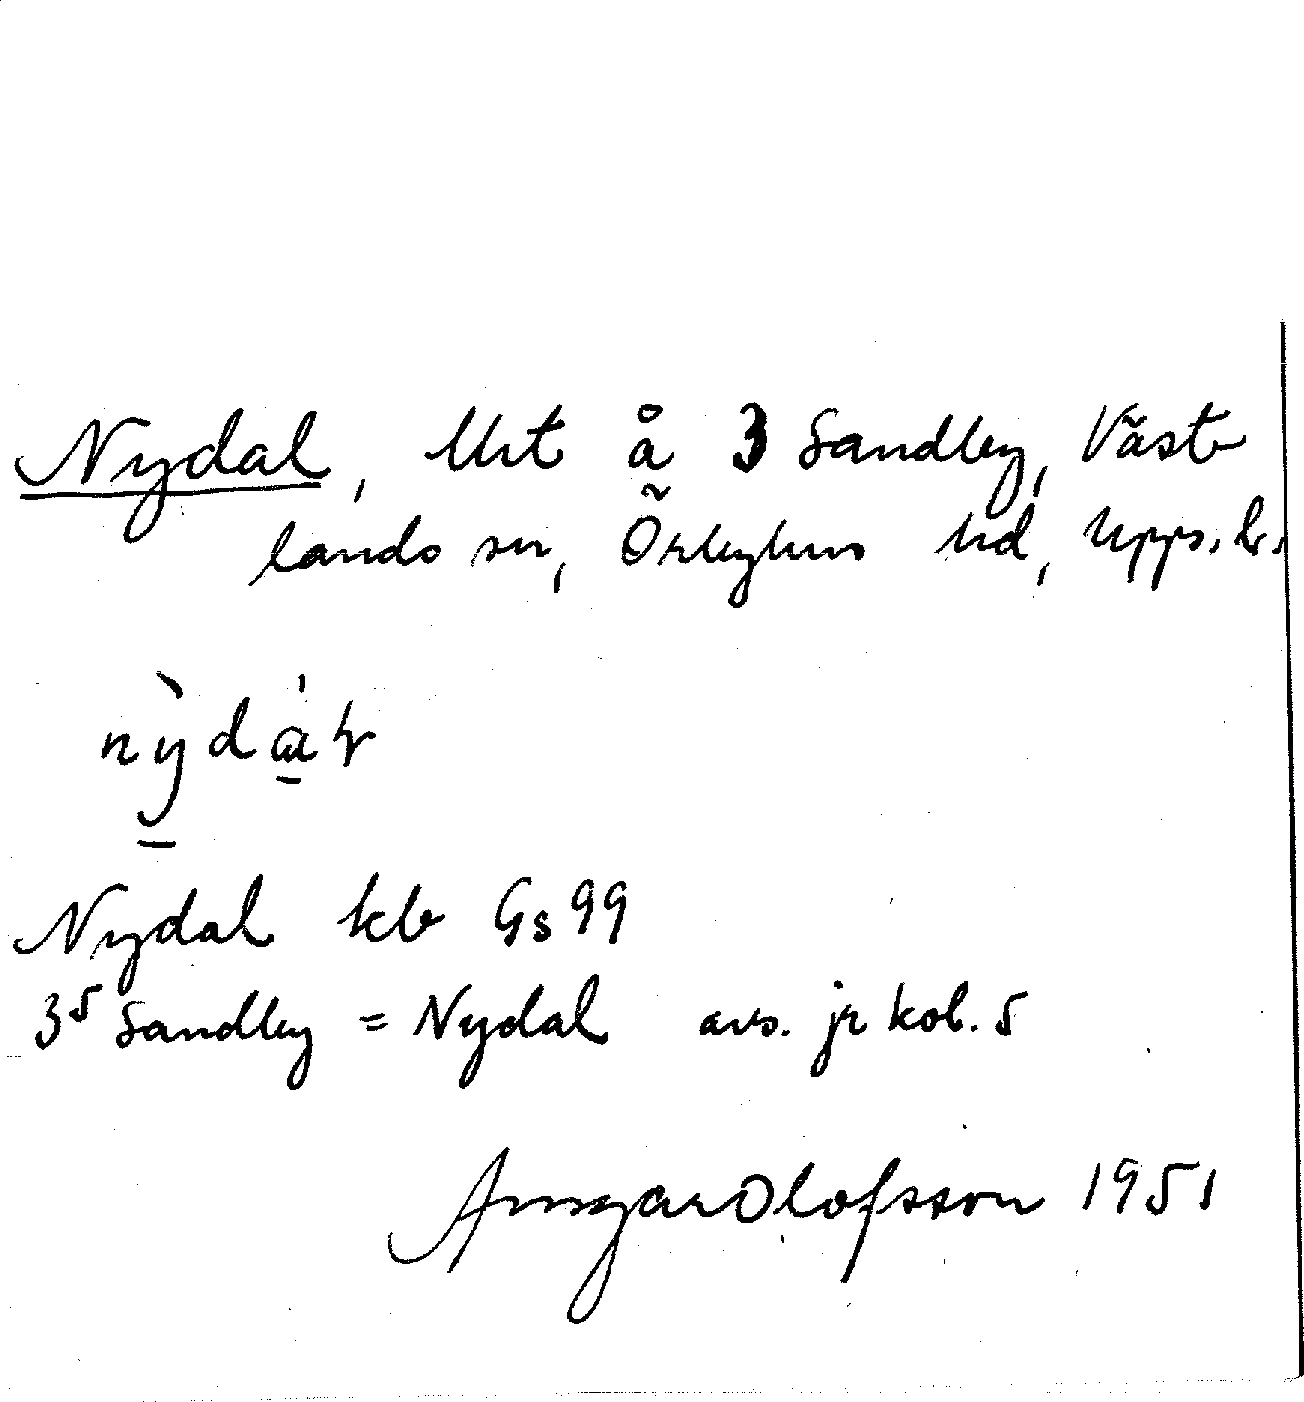 Nydal, lht å 3 Sandby, Väst
lands sn, Örbyhus hd, Upps. l.
nỳdàɫ
Nydal kb Gs 99
3⁵ Sandby = Nydal avs. jr kol. 5
Ansgar Olofsson 1951